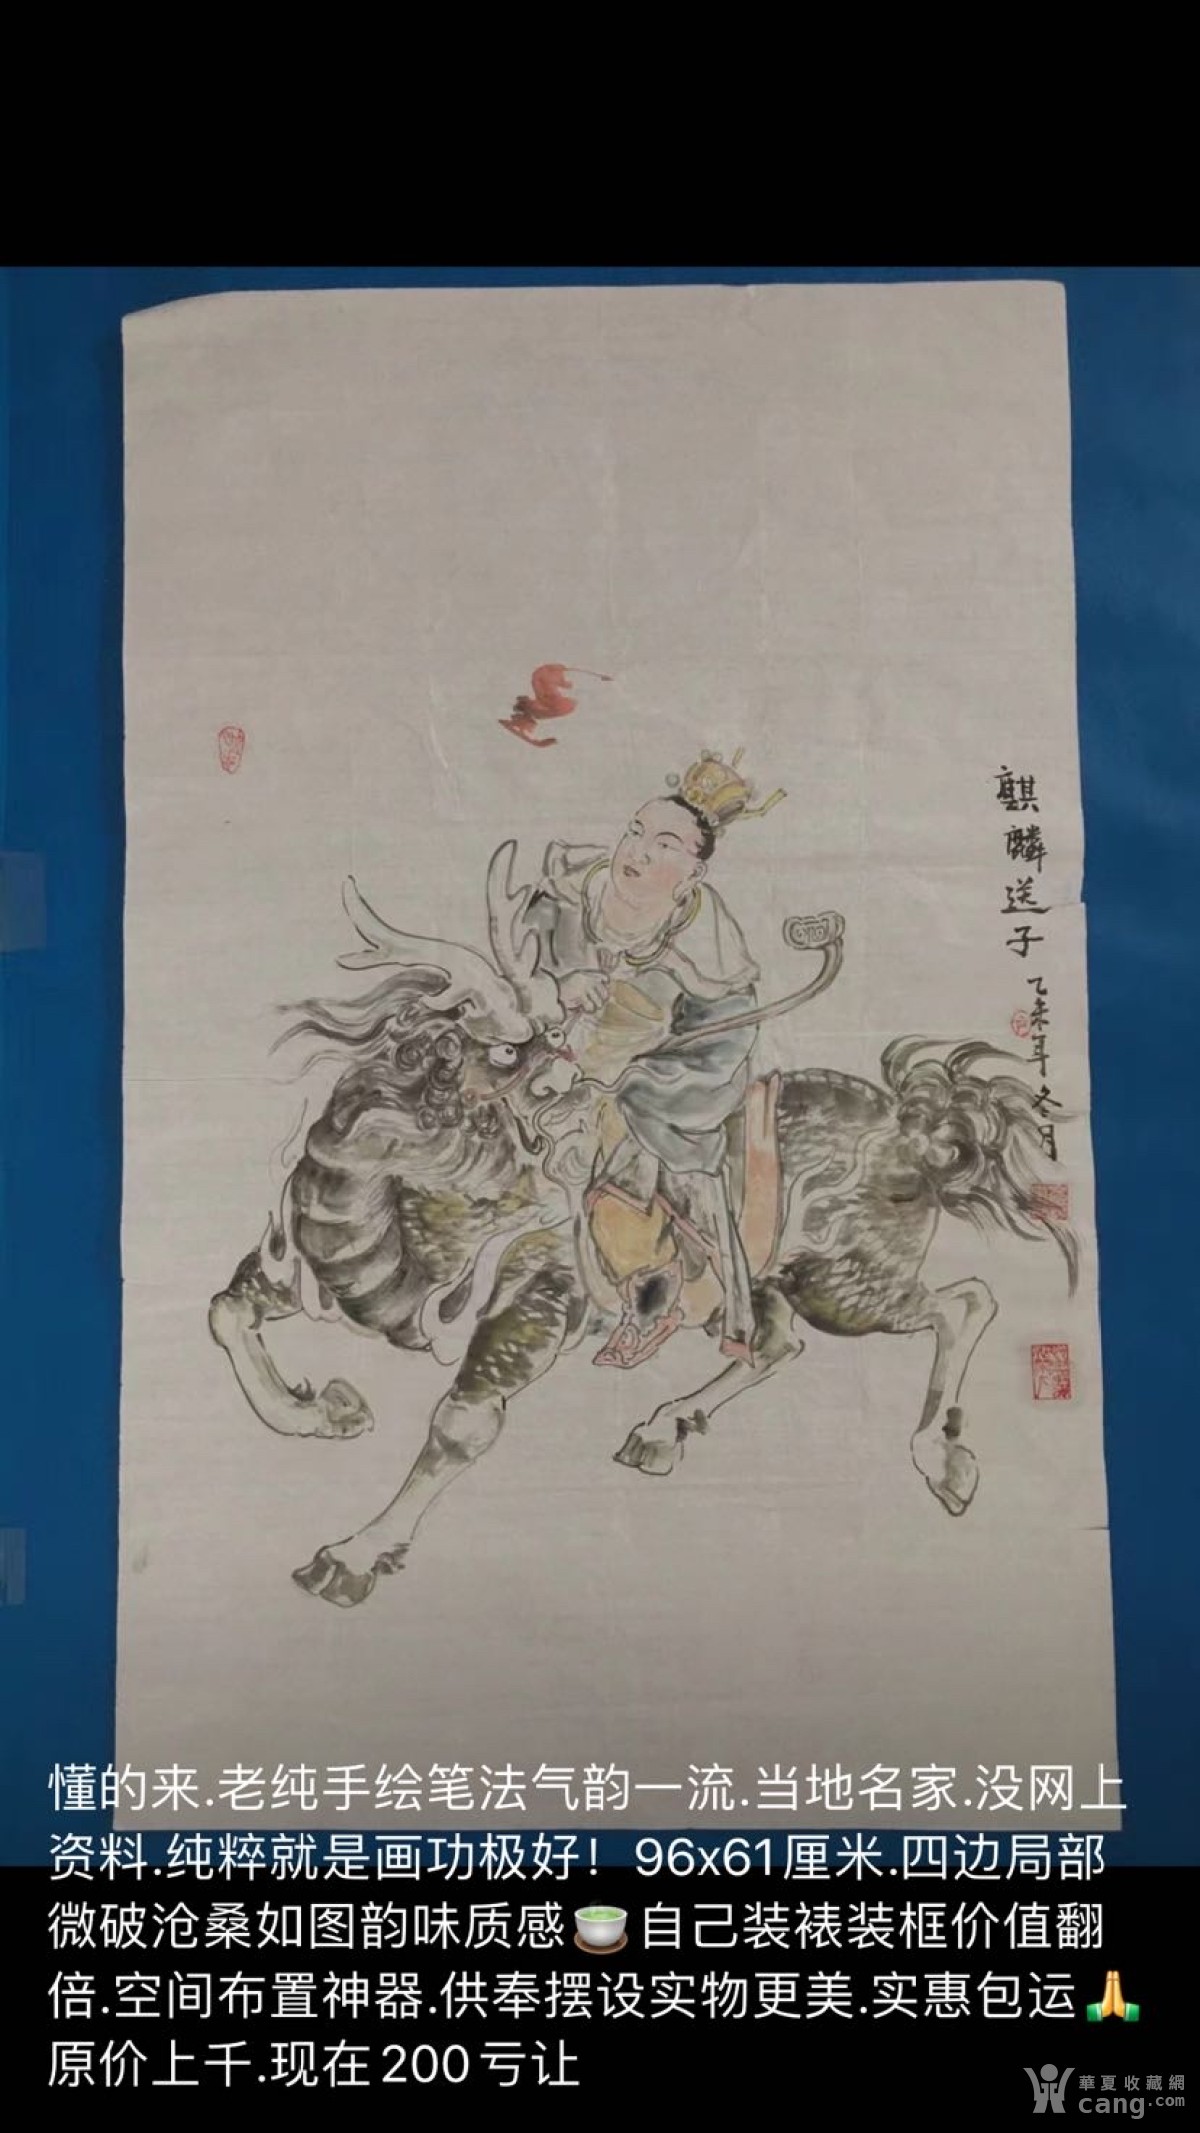 麒麟送子
乙未年冬月
懂的来.老纯手绘笔法气韵一流.当地名家.没网上
资料.纯粹就是画功极好！96x61厘米.四边局部
微破沧桑如图韵味质感🍵自己装裱装框价值翻
倍.空间布置神器.供奉摆设实物更美.实惠包运🙏
原价上千.现在200亏让
華夏收藏網
cang.com